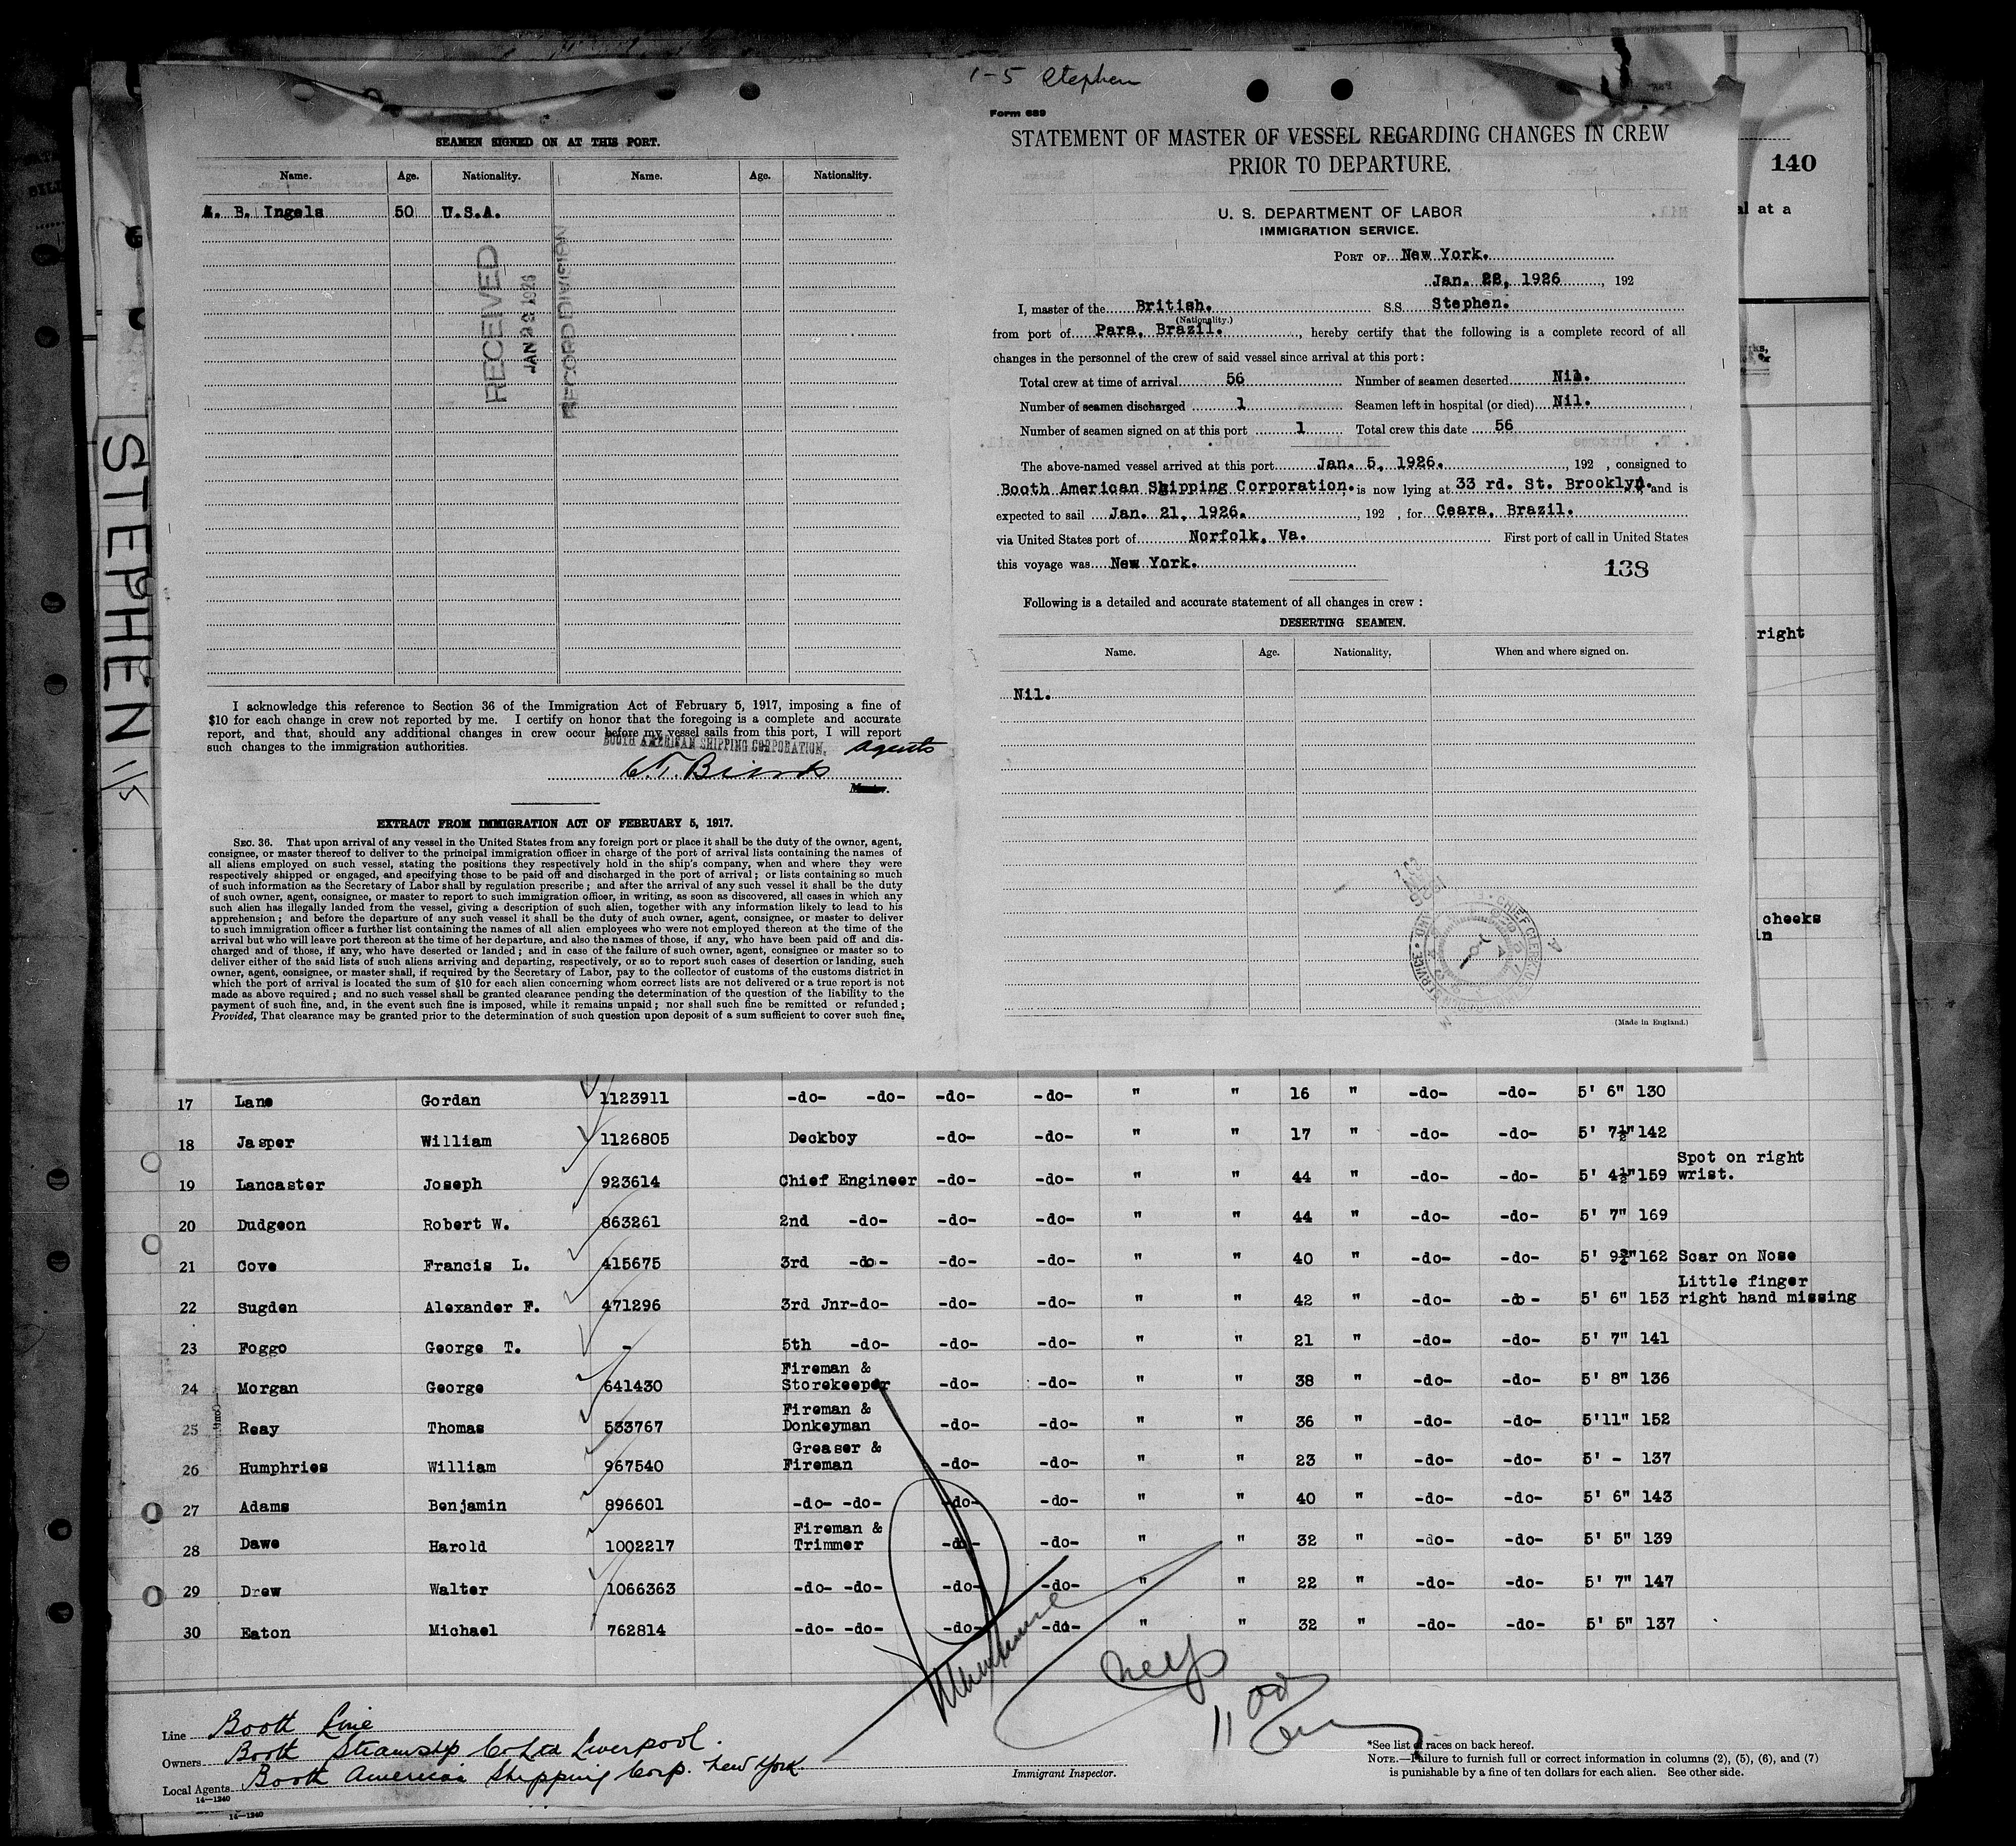 1-5 Stephen
SEAMEN SIGNED ON AT THIS PORT.
Name. Age. Nationality. Name. Age. Nationality.
A. B. Ingels 50 U.S.A.
RECEIVED
JAN 23 1926
RECORD DIVISION
I acknowledge this reference to Section 36 of the Immigration Act of February 5, 1917, imposing a fine of
$10 for each change in crew not reported by me. I certify on honor that the foregoing is a complete and accurate
report, and that, should any additional changes in crew occur before my vessel sails from this port, I will report
such changes to the immigration authorities.
BOOTH AMERICAN SHIPPING CORPORATION, agents
Master.
EXTRACT FROM IMMIGRATION ACT OF FEBRUARY 5, 1917.
SEC. 36. That upon arrival of any vessel in the United States from any foreign port or place it shall be the duty of the owner, agent,
consignee, or master thereof to deliver to the principal immigration officer in charge of the port of arrival lists containing the names of
all aliens employed on such vessel, stating the positions they respectively hold in the ship's company, when and where they were
respectively shipped or engaged, and specifying those to be paid off and discharged in the port of arrival; or lists containing so much
of such information as the Secretary of Labor shall by regulation prescribe; and after the arrival of any such vessel it shall be the duty
of such owner, agent, consignee, or master to report to such immigration officer, in writing, as soon as discovered, all cases in which any
such alien has illegally landed from the vessel, giving a description of such alien, together with any information likely to lead to his
apprehension; and before the departure of any such vessel it shall be the duty of such owner, agent, consignee, or master to deliver
to such immigration officer a further list containing the names of all alien employees who were not employed thereon at the time of the
arrival but who will leave port thereon at the time of her departure, and also the names of those, if any, who have been paid off and dis-
charged and of those, if any, who have deserted or landed; and in case of the failure of such owner, agent, consignee or master so to
deliver either of the said lists of such aliens arriving and departing, respectively, or so to report such cases of desertion or landing, such
owner, agent, consignee, or master shall, if required by the Secretary of Labor, pay to the collector of customs of the customs district in
which the port of arrival is located the sum of $10 for each alien concerning whom correct lists are not delivered or a true report is not
made as above required; and no such vessel shall be granted clearance pending the determination of the question of the liability to the
payment of such fine, and, in the event such fine is imposed, while it remains unpaid; nor shall such fine be remitted or refunded;
Provided, That clearance may be granted prior to the determination of such question upon deposit of a sum sufficient to cover such fine,
Form 689
STATEMENT OF MASTER OF VESSEL REGARDING CHANGES IN CREW
PRIOR TO DEPARTURE.
U. S. DEPARTMENT OF LABOR
IMMIGRATION SERVICE.
PORT OF New York.
Jan. 22, 1926, 192
I, master of the British. S.S. Stephen.
(Nationality.)
from port of Para, Brazil., hereby certify that the following is a complete record of all
changes in the personnel of the crew of said vessel since arrival at this port:
Total crew at time of arrival 56 Number of seamen deserted Nil.
Number of seamen discharged 1 Seamen left in hospital (or died) Nil.
Number of seamen signed on at this port 1 Total crew this date 56
The above-named vessel arrived at this port Jan. 5, 1926., 192 , consigned to
Booth American Shipping Corporation. is now lying at 33 rd. St. Brooklyn. and is
expected to sail Jan. 21, 1926., 192 , for Ceara, Brazil.
via United States port of Norfolk, Va. First port of call in United States
this voyage was New York.
138
Following is a detailed and accurate statement of all changes in crew:
DESERTING SEAMEN.
Name. Age. Nationality. When and where signed on.
Nil.
(Made in England.)
140
al at a
right
cheeks
in
STEPHEN 1/5
17 Lane Gordan 1123911 -do- -do- -do- -do- " " 16 " -do- -do- 5' 6" 130
18 Jasper William 1126805 Deckboy -do- -do- " " 17 " -do- -do- 5' 7½" 142
19 Lancaster Joseph 923614 Chief Engineer -do- -do- " " 44 " -do- -do- 5' 4½" 159 Spot on right wrist.
20 Dudgeon Robert W. 863261 2nd -do- -do- -do- " " 44 " -do- -do- 5' 7" 169
21 Cove Francis L. 415675 3rd -do- -do- -do- " " 40 " -do- -do- 5' 9¾" 162 Scar on Nose
22 Sugden Alexander F. 471296 3rd Jnr-do- -do- -do- " " 42 " -do- -do- 5' 6" 153 Little finger right hand missing
23 Foggo George T. - 5th -do- -do- -do- " " 21 " -do- -do- 5' 7" 141
24 Morgan George 641430 Fireman & Storekeeper -do- -do- " " 38 " -do- -do- 5' 8" 136
25 Reay Thomas 533767 Fireman & Donkeyman -do- -do- " " 36 " -do- -do- 5'11" 152
26 Humphries William 967540 Greaser & Fireman -do- -do- " " 23 " -do- -do- 5' - 137
27 Adams Benjamin 896601 -do- -do- -do- -do- " " 40 " -do- -do- 5' 6" 143
28 Dawe Harold 1002217 Fireman & Trimmer -do- -do- " " 32 " -do- -do- 5' 5" 139
29 Drew Walter 1066363 -do- -do- -do- -do- " " 22 " -do- -do- 5' 7" 147
30 Eaton Michael 762814 -do- -do- -do- -do- " " 32 " -do- -do- 5' 5" 137
Line Booth Line
Owners Booth Steamship Co Ltd Liverpool.
Local Agents Booth American Shipping Corp. New York.
14—1240
14—1240
Immigrant Inspector.
*See list of races on back hereof.
NOTE.—Failure to furnish full or correct information in columns (2), (5), (6), and (7)
is punishable by a fine of ten dollars for each alien. See other side.